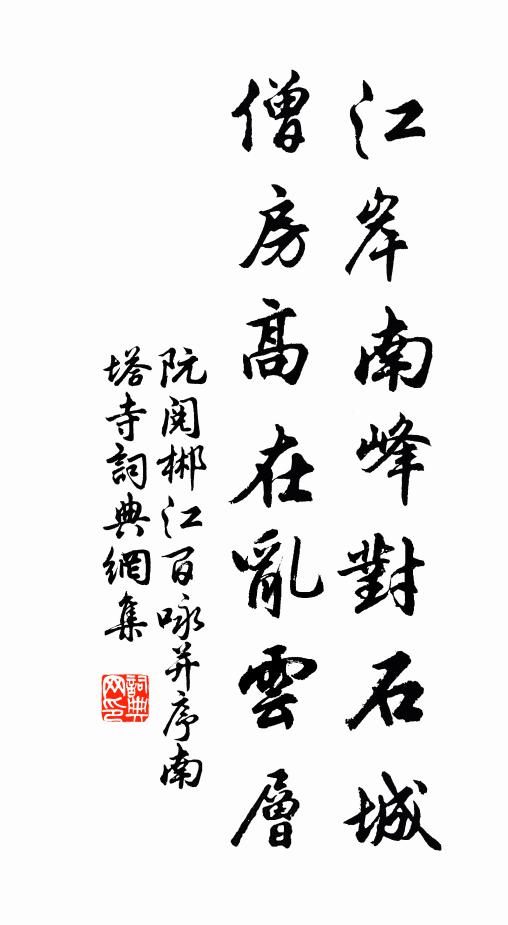 江岸南峰對石城
僧房高在亂雲層
阮閱郴江百咏并序南
塔寺詞典網集
詞典
网印